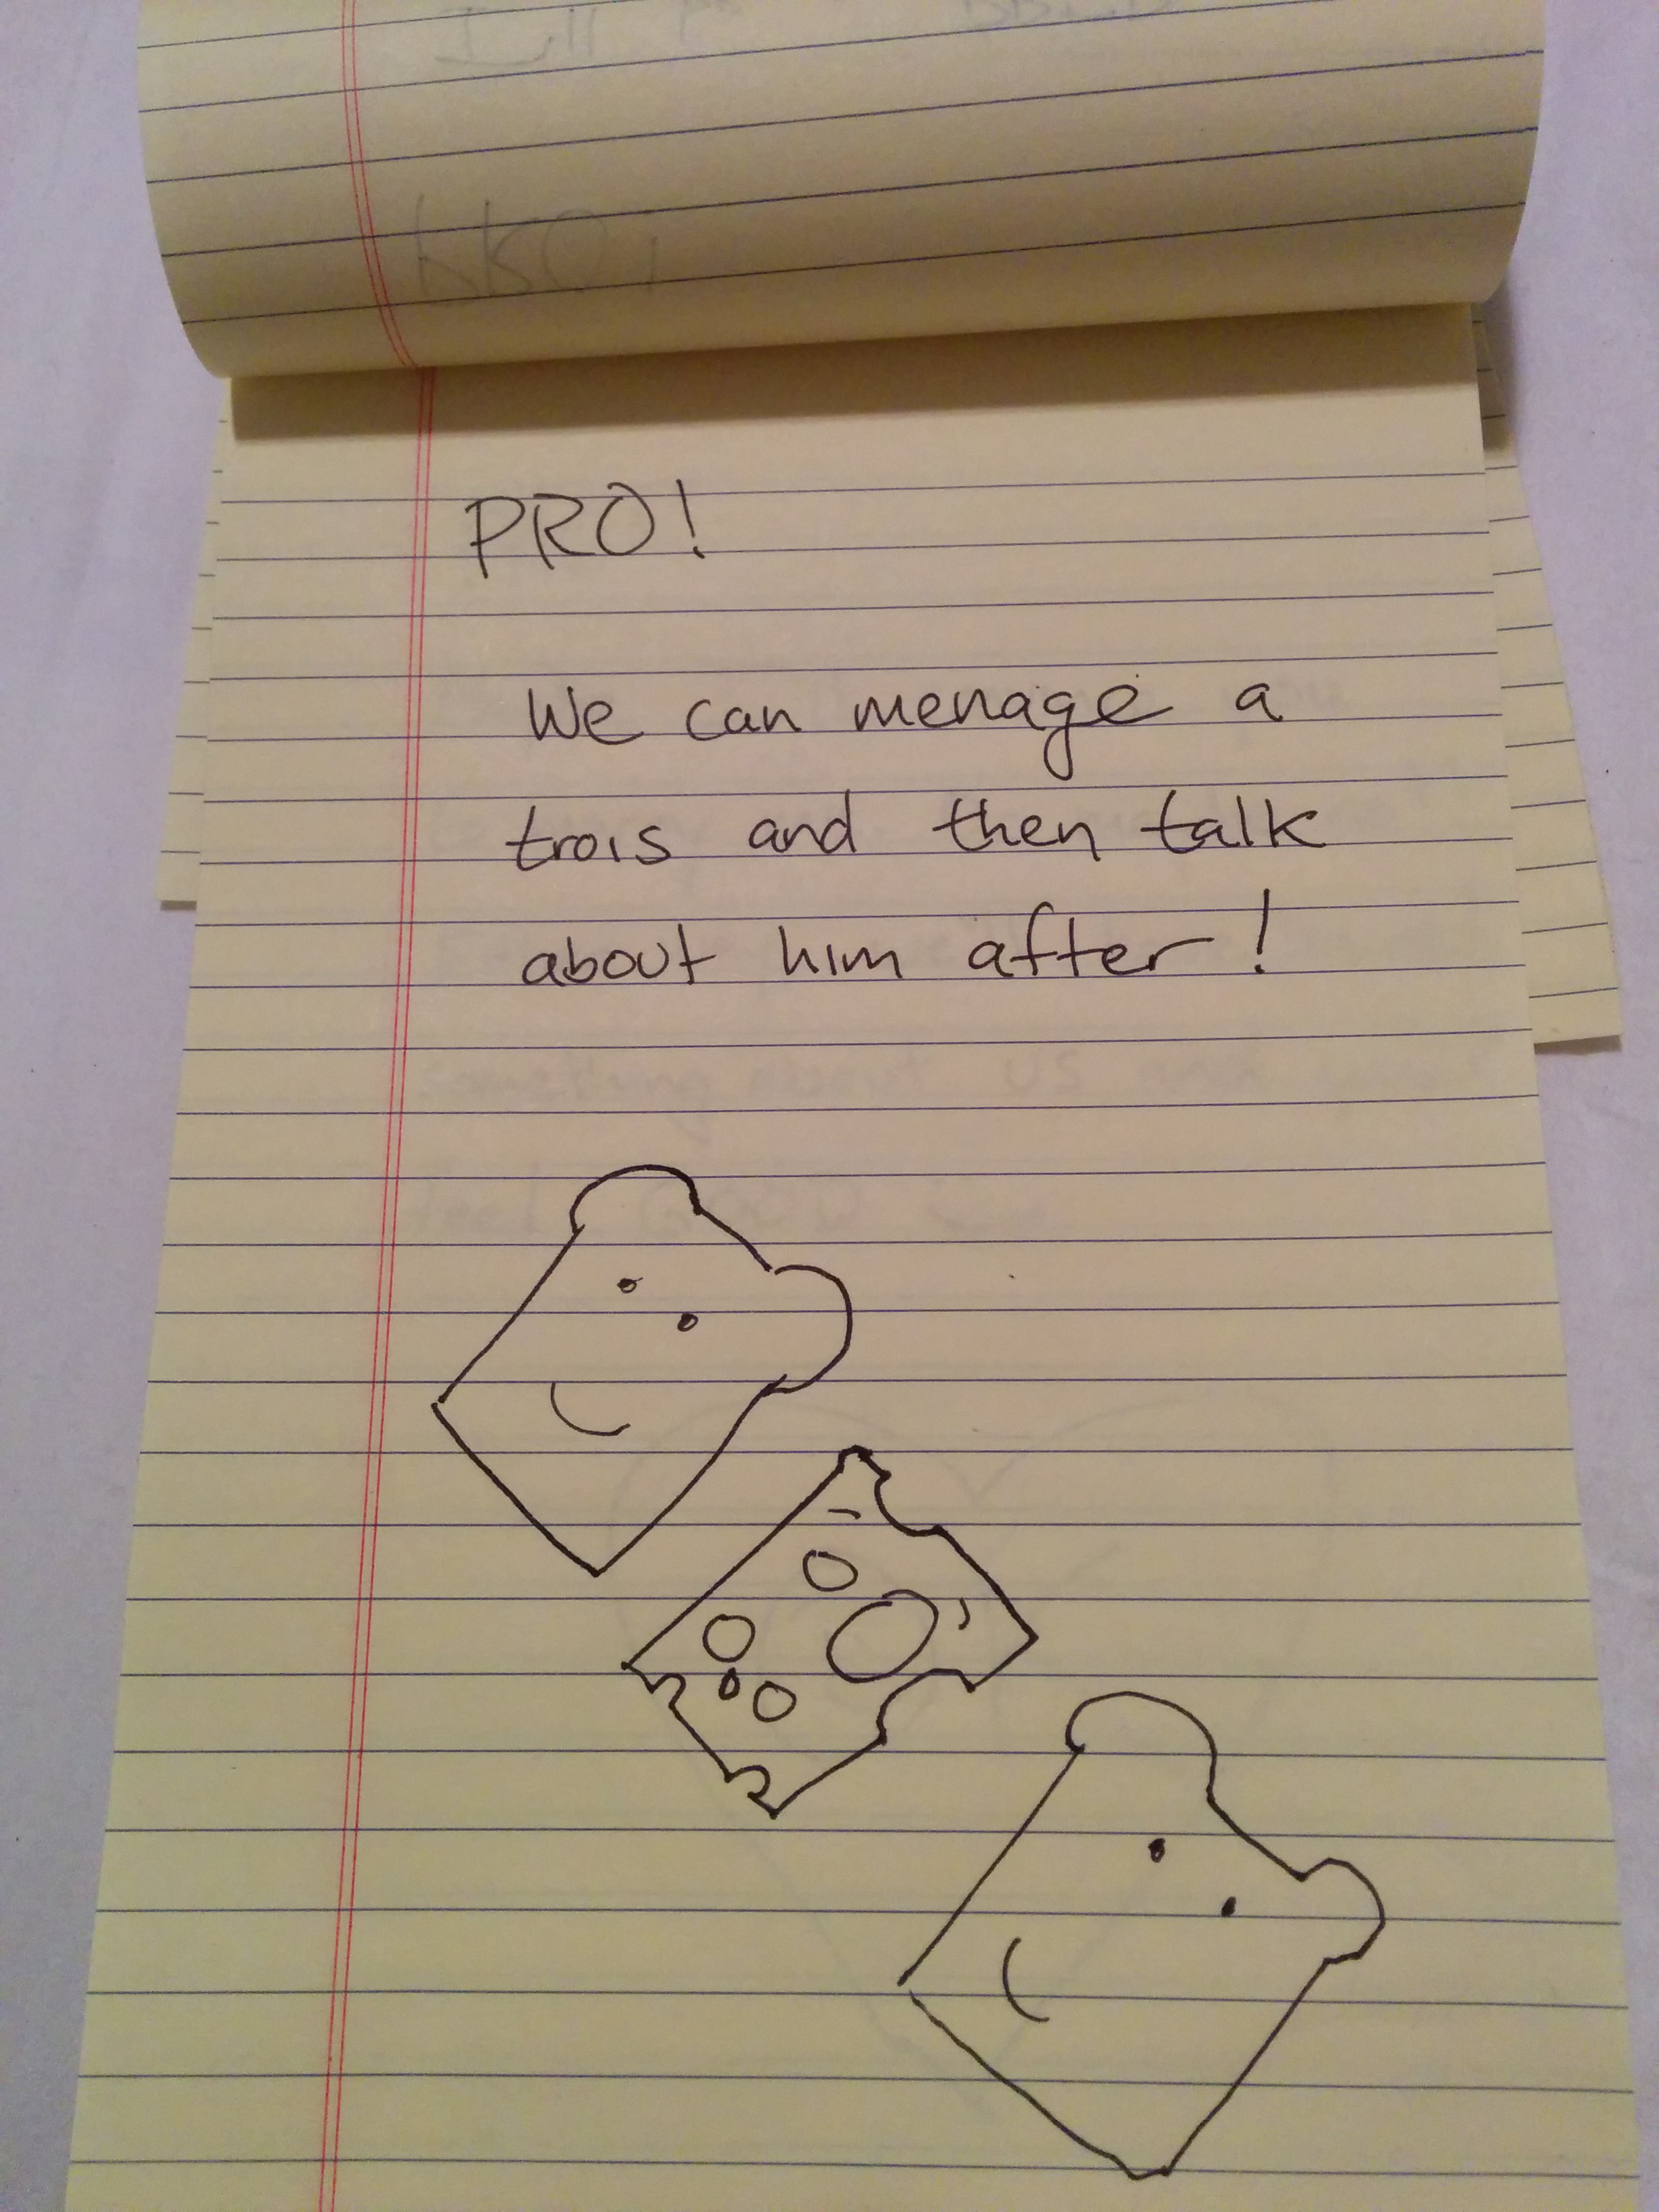 PRO!
We can menage a
trois and then talk
about him after!